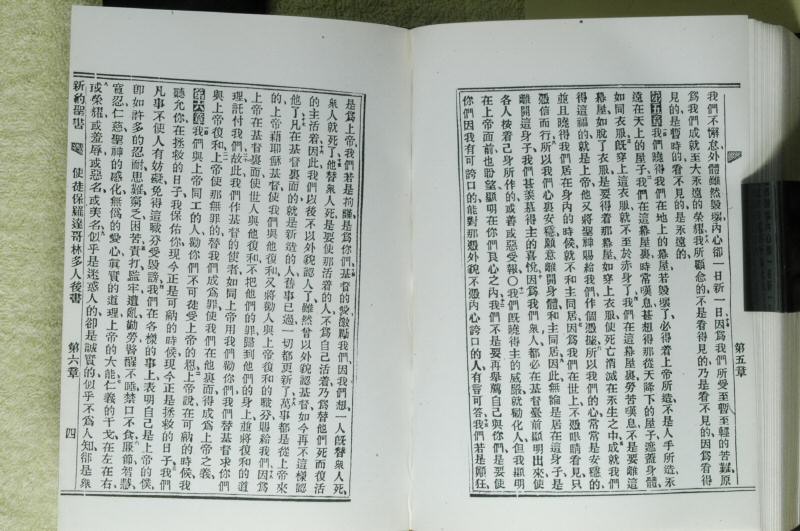 我們不懈怠外體雖然毀壞內心卻一日新一日因為我們所受至暫至輕的苦難原
為我們成就至大永遠的榮耀我所顧念的不是看得見的乃是看不見的因為看得
見的是暫時的看不見的是永遠的
第五章我們曉得我們在地上的幕屋若毀壞了必得着上帝所造不是人手所造永
遠在天上的屋子我們在這幕屋裏時常嘆息甚想得那從天降下的屋子遮蓋身體
如同衣服旣穿上這衣服就不至於赤身了我們在這幕屋裏勞苦嘆息不是要離這
幕屋如脫了衣服是要得着那幕屋如穿上衣服使死亡消滅在永生之中成就我們
得這福的就是上帝他又將聖神賜給我們作個憑據所以我們的心常常是安穩的
並且曉得我們居在身內的時候就不和主同居因為我們在世上不憑眼睛看見只
憑信而行所以我們心裏安穩願意離開身體和主同居因此無論是居在這身子是
離開這身子我們甚羨慕得主的喜悅因為我們衆人都必在基督臺前顯明出來使
各人按着己身所作的或善或惡受報〇我們旣曉得主的威嚴就勸化人但我顯明
在上帝面前也盼望顯明在你們良心之內我們不是要再舉薦自己與你們是要使
你們因我有可誇口的能對那憑外貌不憑內心誇口的人有言可答我們若是顚狂
第五章
是為上帝我們若是謹慎是為你們基督的愛激勵我們因我們想一人旣替衆人死
衆人就死了他替衆人死是要使那活着的人不為自己活着乃為替他們死而復活
的主活着因此我們以後不以外貌認人了雖然曾以外貌認基督如今再不這樣認
他了凡在基督裏面的就是新造的人舊事已過一切都更新了萬事都是從上帝來
的上帝藉耶穌基督使我們與他復和又將勸人與上帝復和的職分賜給我們因為
上帝在基督裏面使世人與他復和不把他們的罪歸到他們的身上並將復和的道
理託付我們故此我們作基督的使者如同上帝用我們勸你們我們替基督求你們
與上帝復和上帝使那無罪的替我們成為罪使我們在他裏面得成為上帝之義
第六章我們與上帝同工的人勸你們不可徒受上帝的恩上帝說在可納的時候我
聽允你在拯救的日子我保佑你現今正是可納的時候現今正是拯救的日子我們
凡事不使人有妨礙免得這職分受毀謗我們在各樣的事上表明自己是上帝的僕
卽如許多的忍耐患難窮乏困苦責打監牢遭亂勤勞醒不睡禁口不食廉節智慧
寬忍仁慈聖神的感化無僞的愛心眞實的道理上帝的大能仁義的干戈在左在右
或榮耀或羞辱或惡名或美名似乎是迷惑人的卻是誠實的似乎不為人知卻是衆
新約聖書 使徒保羅達哥林多人後書 第六章 四